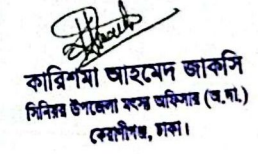 কারিশমা আহমেদ জাকসি
সিনিয়র উপজেলা মৎস্য অফিসার (অ.দা.)
কেরাণীগঞ্জ, ঢাকা।